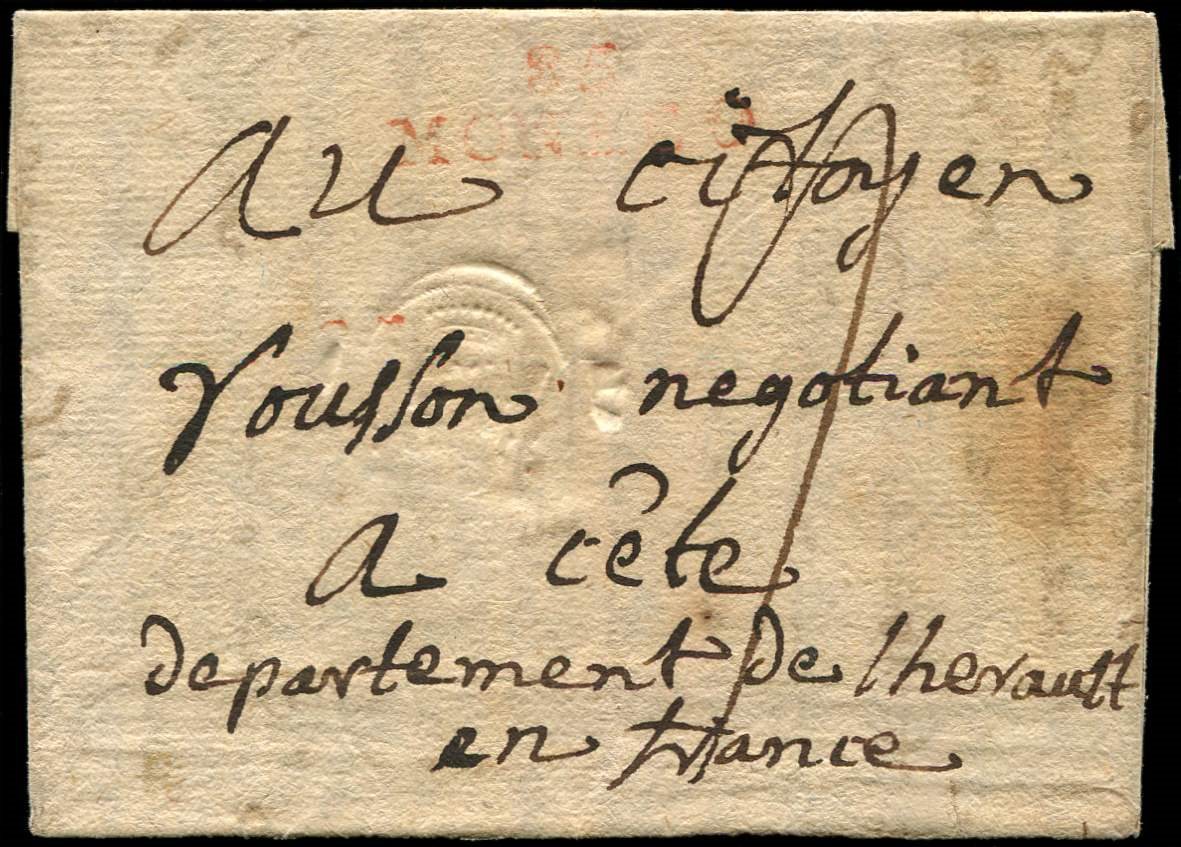 85
MONACO
au citoyen
rousson negotiant
a cête
departement de lherault
en france